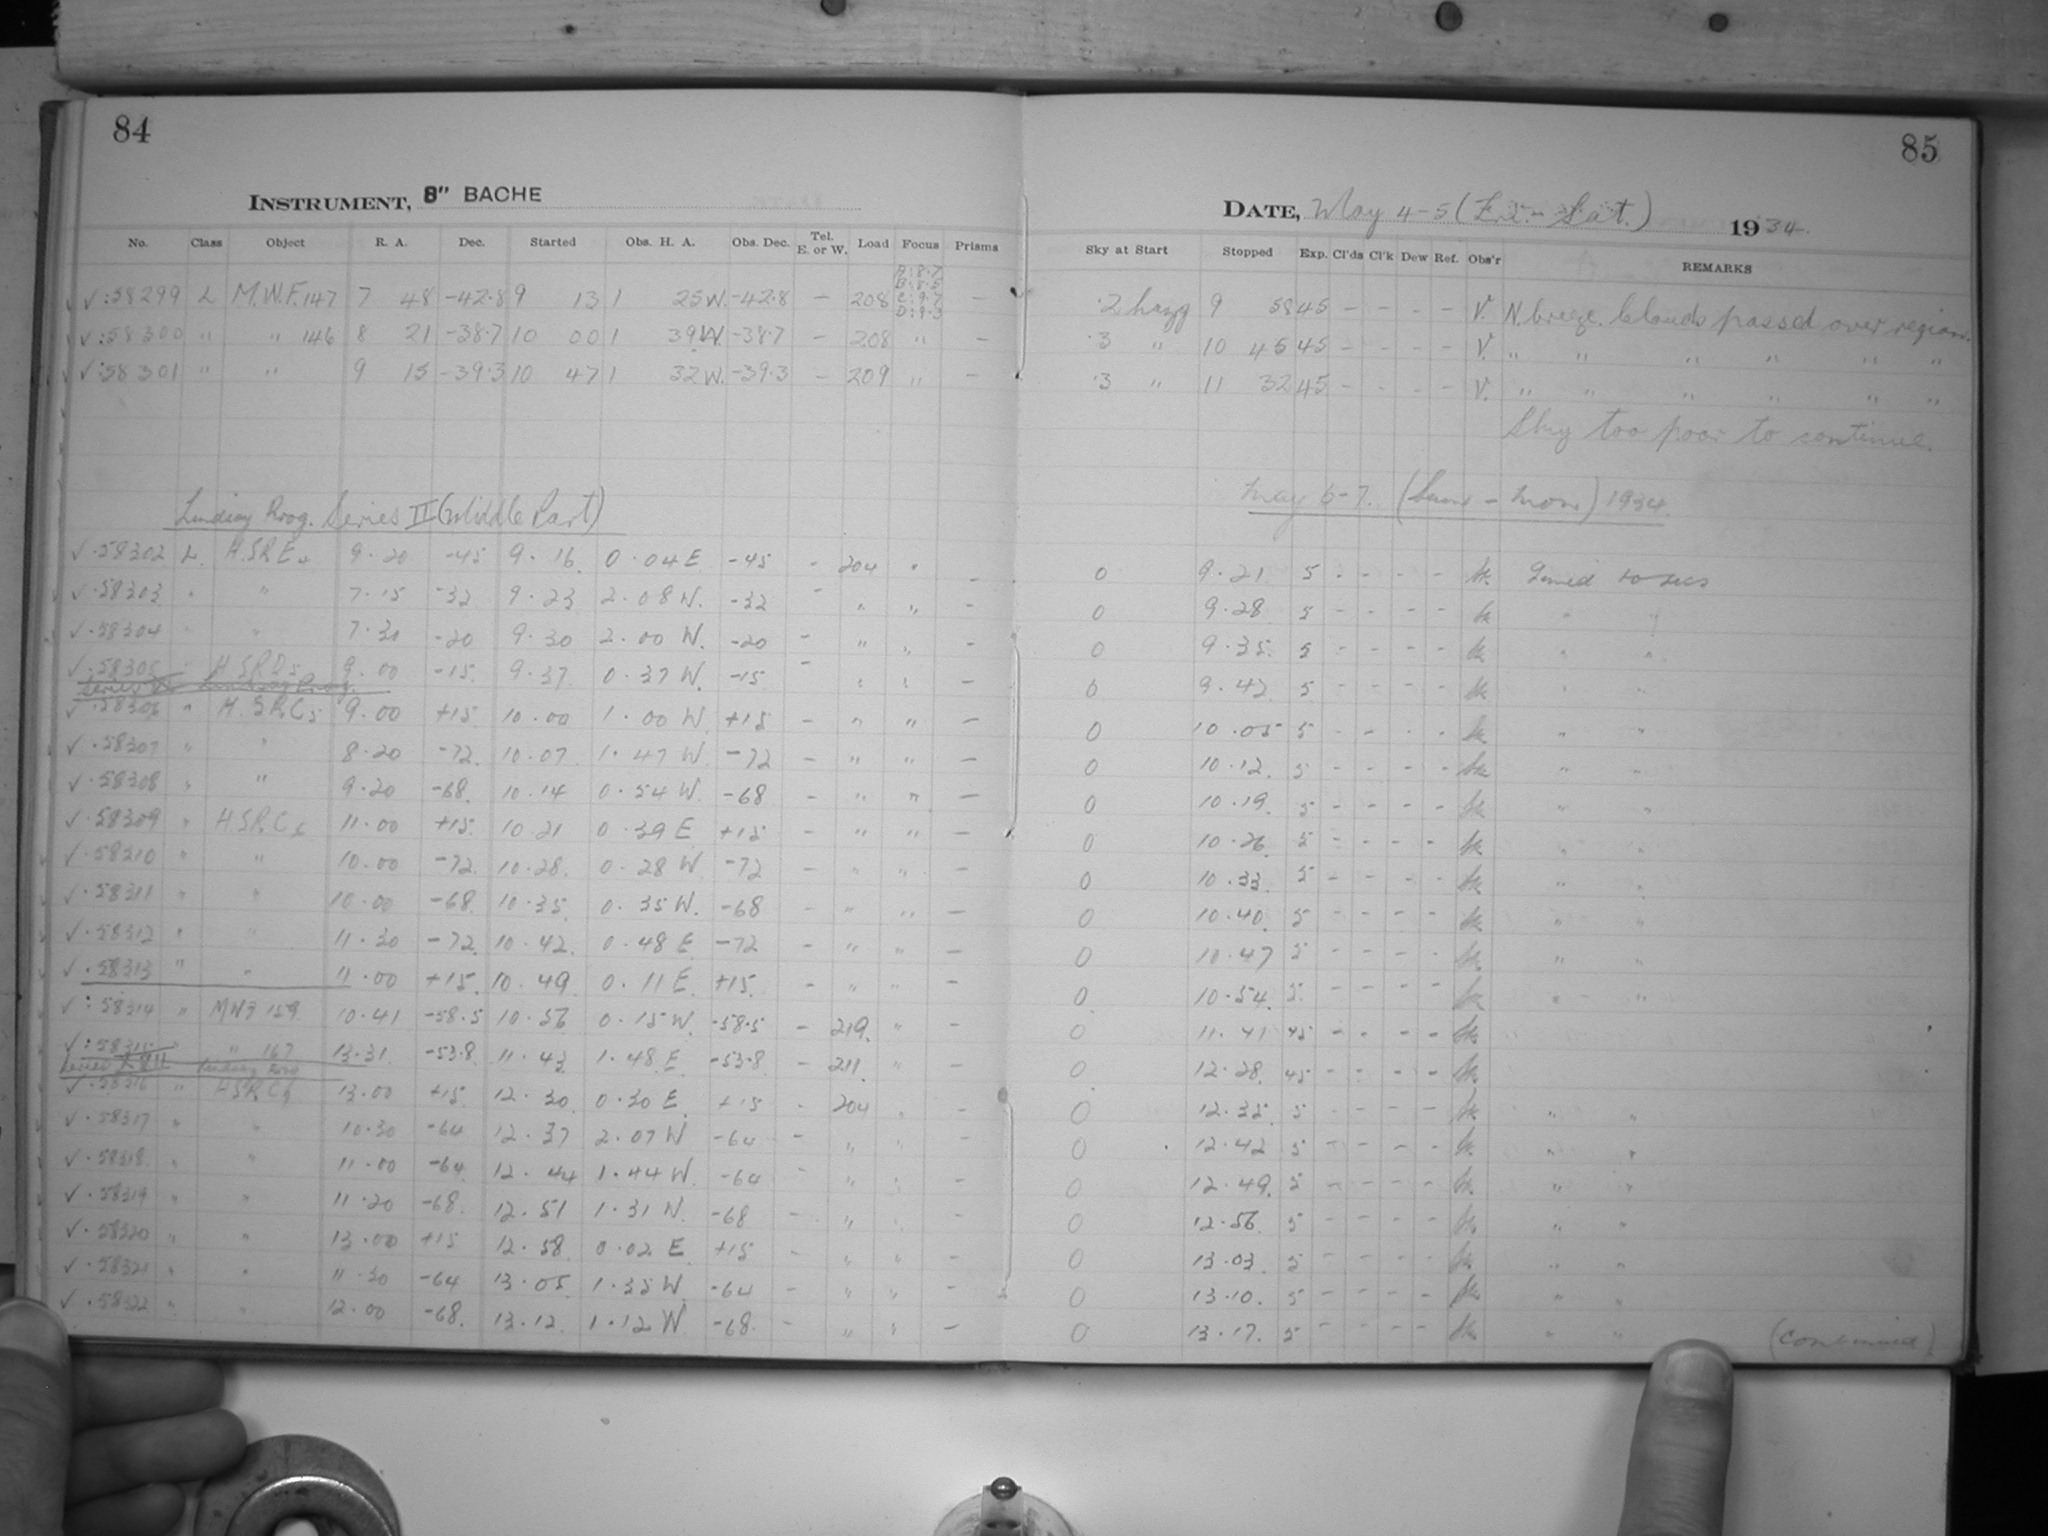 84
INSTRUMENT, 8" BACHE
No. Class Object R. A. Dec. Started Obs. H. A. Obs. Dec. Tel. E. or W. Load Focus Prisms
A: 8.7
B: 8.5
C: 9.7
D: 9.3
✓:58299 L M.W.F. 147 7 48 -42.8 9 13 1 25W. -42.8 - 208 -
✓:58300 " " 146 8 21 -38.7 10 00 1 39W. -38.7 - 208 " -
✓:58301 " " 9 15 -39.3 10 47 1 32W. -39.3 - 209 " -
Lindsay Prog. Series II (Middle Part)
✓.58302 L. H.SRE 9.20 -45 9.16 0.04E -45 - 204 " -
✓.58303 " " 7.15 -32 9.23 2.08W. -32 - " " -
✓.58304 " 7.30 -20 9.30 2.00 W. -20 - " " -
✓.58305 H.SRD5 9.00 -15 9.37 0.37 W. -15 - " " -
✓.58306 " H.SRC5 9.00 +15 10.00 1.00 W +15 - " " -
✓.58307 " " 8.20 -72 10.07 1.47 W. -72 - " " -
✓.58308 " " 9.20 -68 10.14 0.54 W. -68 - " " -
✓.58309 " H.SRC 11.00 +15 10 21 0.39 E +15 - " " -
✓.58310 " " 10.00 -72 10.28 0.28 W -72 - " " -
✓.58311 " " 10.00 -68 10.35 0.35 W. -68 - " " -
✓.58312 " " 11.30 -72 10.42 0.48 E -72 - " " -
✓.58313 " " 11.00 +15 10.49 0.11 E +15 - " " -
✓:58314 " MWF 159 10.41 -58.5 10.56 0.15 W. -58.5 - 219 " -
✓:58315 " 167 13.31 -53.8 11.43 1.48 E -53.8 - 211 " -
✓.58316 " H.SRC 13.00 +15 12.30 0.30 E +15 - 204 " -
✓.58317 " " 10.30 -64 12.37 2.07 W -64 - " " -
✓.58318 " " 11.00 -64 12.44 1.44 W. -64 - " " -
✓.58319 " " 11.20 -68 12.51 1.31 W. -68 - " " -
✓.58320 " " 13.00 +15 12.58 0.02 E +15 - " " -
✓.58321 " " 11.30 -64 13.05 1.35 W -64 - " " -
✓.58322 " " 12.00 -68 13.12 1.12 W -68 - " " -
85
DATE, May 4-5 (Fri - Sat.) 1934.
Sky at Start Stopped Exp. Cl'ds Cl'k Dew Ref. Obs'r REMARKS
.2 hazy 9 58 45 - - - - V. N. breeze. Clouds passed over region.
.3 " 10 45 45 - - - - V. " " " " " "
.3 " 11 32 45 - - - - V. " " " " " "
Sky too poor to continue.
May 6-7. (Sun - Mon) 1934.
0 9.21 5 - - - - 10 secs
0 9.28 5 - - - - " "
0 9.35 5 - - - - " "
0 9.42 5 - - - - " "
0 10.05 5 - - - - " "
0 10.12 5 - - - - " "
0 10.19 5 - - - - " "
0 10.26 5 - - - - " "
0 10.33 5 - - - - " "
0 10.40 5 - - - - " "
0 10.47 5 - - - - " "
0 10.54 5 - - - - " "
0 11.41 45 - - - -
0 12.28 45 - - - -
0 12.35 5 - - - - " "
0 12.42 5 - - - - " "
0 12.49 5 - - - - " "
0 12.56 5 - - - - " "
0 13.03 5 - - - - " "
0 13.10 5 - - - - " "
0 13.17 5 - - - - " "
(continued)